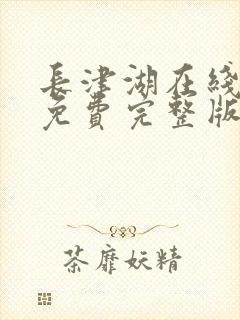 長津湖在綫
免費完整版
茶靡妖精